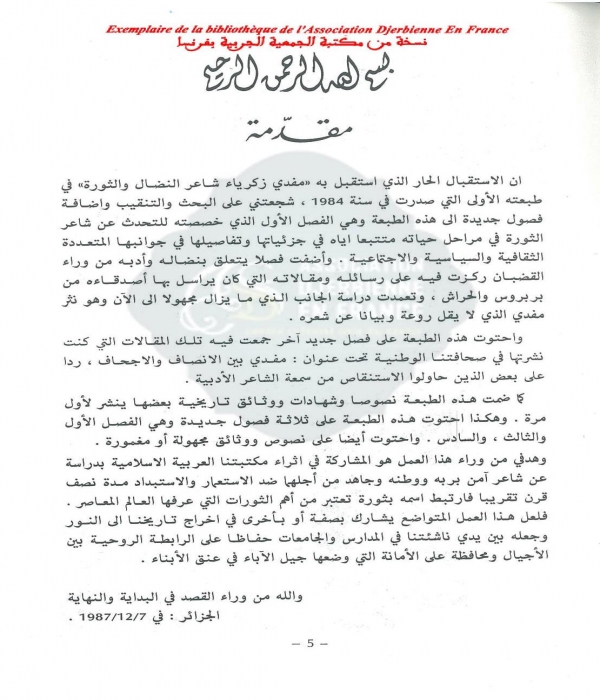 Exemplaire de la bibliothèque de l'Association Djerbienne En France
نسخة من مكتبة الجمعية الجربية بفرنسا
بسم الله الرحمن الرحيم
مقدّمة
ان الاستقبال الحار الذي استقبل به «مفدي زكرياء شاعر النضال والثورة» في
طبعته الأولى التي صدرت في سنة 1984 ، شجعتني على البحث والتنقيب واضافة
فصول جديدة الى هذه الطبعة وهي الفصل الأول الذي خصصته للتحدث عن شاعر
الثورة في مراحل حياته متتبعا اياه في جزئياتها وتفاصيلها في جوانبها المتعددة
الثقافية والسياسية والاجتماعية . وأضفت فصلا يتعلق بنضاله وأدبه من وراء
القضبان ركزت فيه على رسائله ومقالاته التي كان يراسل بها أصدقاءه من
بربروس والحراش ، وتعمدت دراسة الجانب الذي ما يزال مجهولا الى الآن وهو نثر
مفدي الذي لا يقل روعة وبيانا عن شعره .
واحتوت هذه الطبعة على فصل جديد آخر جمعت فيه تلك المقالات التي كنت
نشرتها في صحافتنا الوطنية تحت عنوان : مفدي بين الانصاف والاجحاف ، ردا
على بعض الذين حاولوا الاستنقاص من سمعة الشاعر الأدبية .
كما ضمت هذه الطبعة نصوصا وشهادات ووثائق تاريخية بعضها ينشر لأول
مرة . وهكذا احتوت هذه الطبعة على ثلاثة فصول جديدة وهي الفصل الأول
والثالث ، والسادس . واحتوت أيضا على نصوص ووثائق مجهولة أو مغمورة .
وهدفي من وراء هذا العمل هو المشاركة في اثراء مكتبتنا العربية الاسلامية بدراسة
عن شاعر آمن بربه ووطنه وجاهد من أجلهما ضد الاستعمار والاستبداد مدة نصف
قرن تقريبا فارتبط اسمه بثورة تعتبر من أهم الثورات التي عرفها العالم المعاصر .
فلعل هذا العمل المتواضع يشارك بصفة أو بأخرى في اخراج تاريخنا الى النور
وجعله بين يدي ناشئتنا في المدارس والجامعات حفاظا على الرابطة الروحية بين
الأجيال ومحافظة على الأمانة التي وضعها جيل الآباء في عنق الأبناء .
والله من وراء القصد في البداية والنهاية
الجزائر : في 1987/12/7 .
– 5 –